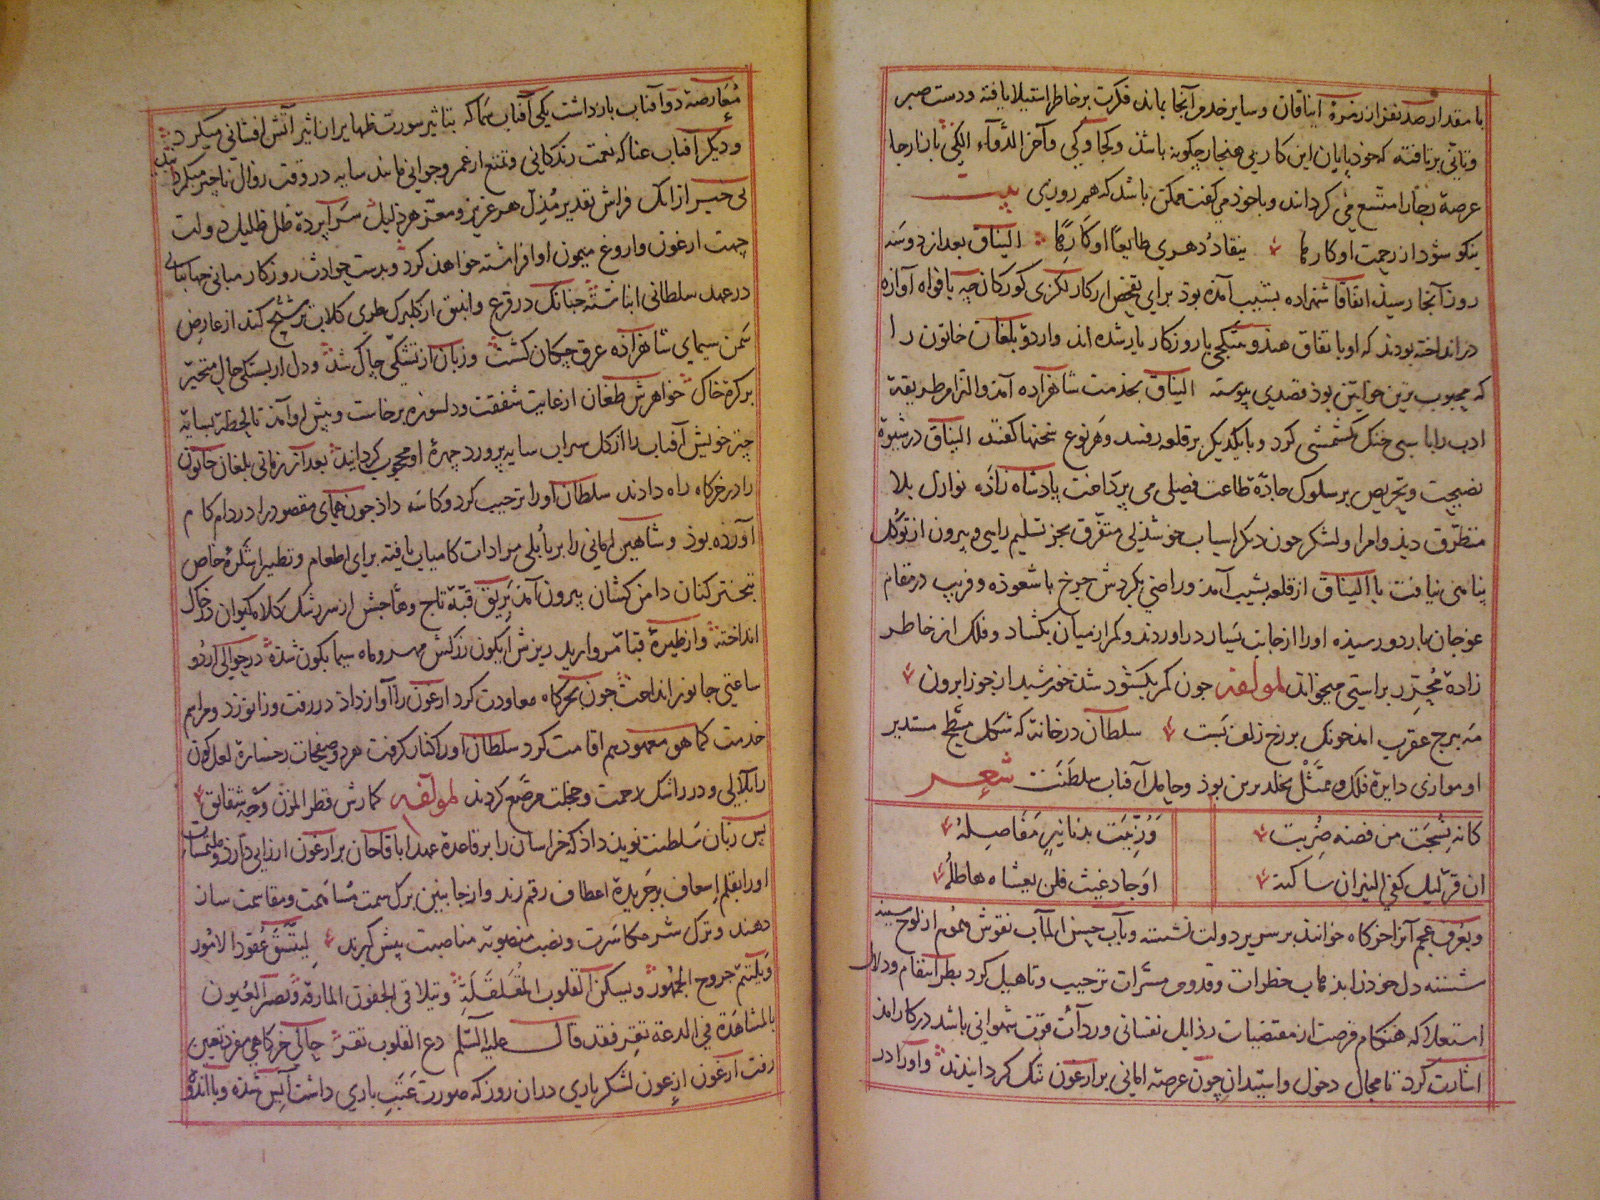 با مقدار صد نفر از زمرهٔ ایناقان و سایر خدم آنجا بماند فکرت بر خاطر استیلا یافته و دست صبر
و تانی بر تافته که خود پایان این کار بی هنجار چکونه باشد و کجا و کی و آخر الدوآء الکی تا بنا رجا
عرصهٔ رجا را متسع می کرداند و با خود می کفت ممکن باشد که هم روزی بیت
نیکو شود از رحمت او کار ما ینقاد دهری طایعا او کارها الیناق بعد از دو سه
روز آنجا رسید اتفاقا شهزاده بشیب آمده بود برای تفحص ار کار لکزی کورکان چه بافواه آوازه
در انداخته بودند که او با تفاق هندو یتکجی با روزکار یار شده اند و اردو بلغان خاتون را
که محبوب ترین خواتین بود قصدی پیوسته الیناق بخدمت شاهزاده آمد و التزام طریقهٔ
ادب را با سی خنک کشمشی کرد و با یکدیکر بر قلعه رفتند و هر نوع سخنها کفتند الیناق در شیوهٔ
نصیحت و تحریص بر سلوک جادهٔ طاعت فصلی می پرداخت پادشاه زاده نوازل بلا
متطرق دید و امرا و لشکر چون دیکر اسباب خوشدلی متفرق بجز تسلیم رایی و بیرون از توکل
پنا منی نیافت با الیناق از قلعه بشیب آمد و راضی بکردش چرخ با شعوذه و فریب در مقام
عوجان باردو رسیده او را از جانب یسار در اوردند و کمر از میان بکشاد و فلک از خاطر
زادهٔ محرر براستی میخواند لمولفه چون کمر بکشود شد خورشید از جوزا برون
مه ببرج عقرب اند چونک بر رخ زلف بست سلطان در خانهٔ که شکل مسطح مستدیر
او موازی دایرهٔ فلک و ممثل بخلد برین بود و حامل آفتاب سلطنت شعر
کانه نسجت من فضه ضربت وزینت بدنانیر مفاصله
ان قر لیل کفی النیران ساکنه او جاد غیث فلن یغشاه هاطله
و بعرف عجم آنرا خرکاه خوانند بر سریر دولت نشسته و بآب حسن المآب نقوش هموم از لوح سینه
شسته دل خود را بد کتاب خطرات و قدوم مسرات ترحیب و تاهیل کرد بطر انتقام و دلال
استعلا که هنکام فرصت از مقتضیات رذایل نفسانی و ردآئت قوت شهوانی باشد در کار امد
اشارت کرد تا مجال دخول و استیدان چون عرصهٔ امانی بر ارغون تنک کردانیدند و او را در
معارضهٔ دو آفتاب بازداشت یکی آفتاب سما که بتاثیر سورت ظهایر ان اثیر آتش افشانی میکرد
و دیکر آفتاب عنا که نعمت زندکانی و تمتع از عمر و جوانی مانند سایه در وقت زوال ناچیز میکردانید
بی خبر از انک فراش تقدیر مذل هر عزیز و معز هر ذلیل سراپردهٔ ظل ظلیل دولت
جهت ارغون و اروغ میمون او افراشته خواهد کرد و بدست حوادث روزکار مبانی جهانبانی
در عهد سلطانی انباشته چنانک در قرع و انبیق از کلبرک طری کلاب ترشیح کند از عارض
سمن سیمای شاهزاده عرق چکان کشت و زبان از تشنکی چاک شد و دل از بستکی حال متحیر
بر کرهٔ خاک خواهرش طغان از غایت شفقت و دلسوزه برخاست و پیش او آمد تا لحظهٔ بسایهٔ
چتر خویش آفتاب را از کل سراب سایه پرورد چهرهٔ او محجوب کرداند بعد از زمانی بلغان خاتون
را در خرکاه راه دادند سلطان او را ترحیب کرد و کاسه داد چون همای مقصود را در دام کام
آورده بود و شاهین امانی را بر بابلی مرادات کامیاب یافته برای اطعام و تطییر اشکرهٔ خاص
تبختر کنان دامن کشان بیرون آمد بریق قبهٔ تاج وهاجش از سر رشک کلاه کیوان در خاک
انداخته و از طیرهٔ قبا مروارید ریزش اکون زرکش مهر و ماه سیما بکون شده در حوالی اردو
ساعتی جانور انداخت چون بخرکاه معاودت کرد ارغون را آواز داد در رفت و زانو زد و مراسم
خدمت کما هو معهود بهم اقامت کرد سلطان او را کنار کرفت هر دو صفحات رخسارهٔ لعل کون
را بلآلی و درر اشک رحمت و خجلت مرصع کردند لمولفه کما رش قطر المزن وجه شقائق
پس زبان سلطنت نوید داد که خراسان را بر قاعدهٔ عهد اباقاخان بر ارغون ارزانی دارد و ملتمسات
او را بقلم اسعاف بر جریدهٔ اعطاف رقم زند و از جانبین بر کل سمت مسامحت و مقاسمت ساز
دهند و ترک شره مکاسرت و نصب منصوبه مناصبت پیش کیرند لیتسق عقود الامور
و یلتئم جروح الجمهور و یسکن القلوب المقلقلة و تیلاقی الجفون المارقه و نصر العیون
بالمشاهدة فی الدعة تقر فقد قال علیه السلم دع القلوب تقر حالی خرکاهی مفرد تعین
رفت ارغون از عون لشکر یاری در ان روز که صورت عتب باری داشت آیس شده و با اندوه